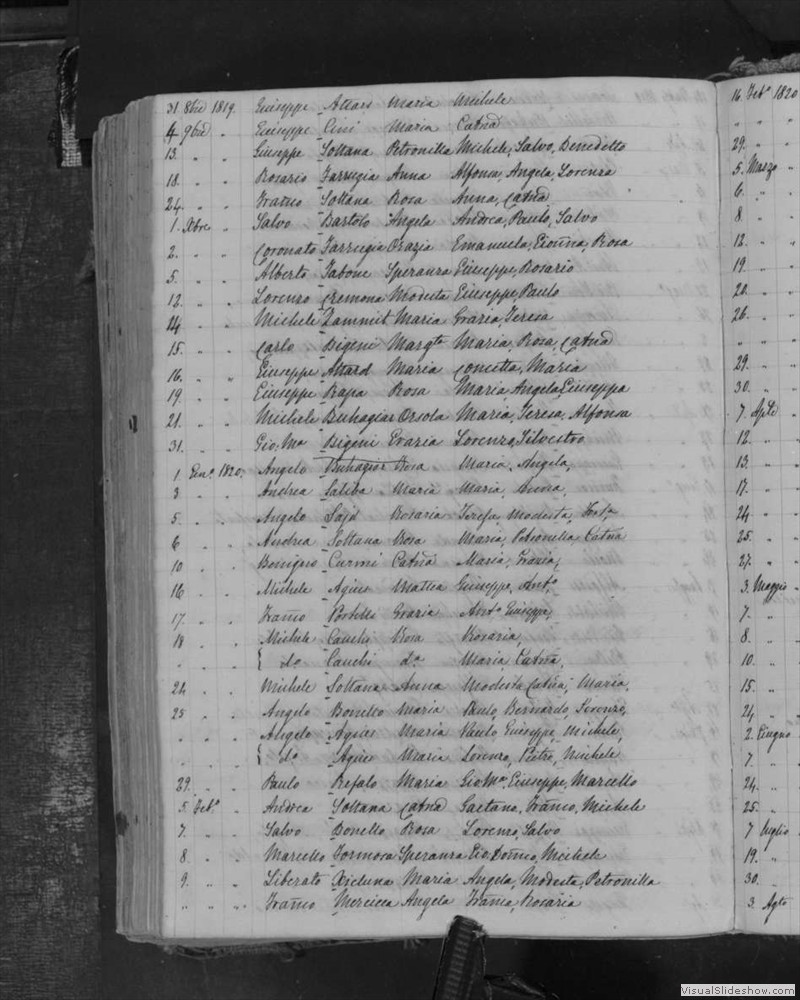 31. 8bre 1819. Giuseppe Attars Maria Michele
4 9bre " Giuseppe Cini Maria Catna
13. " " Giuseppe Soltana Petronilla Michele, Salvo, Benedetto
18. " " Rosario Farrugia Anna Alfonsa, Angela, Lorenza
24. " " Franco Soltana Rosa Anna, Catna
1. Xbre " Salvo Bartolo Angela Andrea, Paulo, Salvo
2. " " Coronato Farrugia Orazia Emanuela, Rosa
5. " " Alberto Tabone Speranza Giuseppe, Rosario
12. " " Lorenzo Cremona Modesta Giuseppe, Paulo
14. " " Michele Zammit Maria Grazia, Teresa
15. " " Carlo Bigeni Margta Maria, Rosa, Catna
16. " " Giuseppe Attard Maria Concetta, Maria
19. " " Giuseppe Rapa Rosa Maria Angela, Giuseppa
21. " " Michele Buhagiar Orsola Maria, Teresa, Alfonsa
31. " " Gio: Ma Bigeni Grazia Lorenzo, Silvestro
1 Genro 1820. Angelo Buhagiar Rosa Maria, Angela,
3 " " Andrea Saliba Maria Maria, Anna,
5 " " Angelo Sajd Rosaria Teresa, Modesta,
6 " " Andrea Soltana Rosa Maria, Petronilla Catna
10 " " Benigno Curmi Catna Maria, Frania,
16 " " Michele Agius Mattea Giuseppe, Anto
17. " " Franco Portelli Grazia Anto Giuseppe,
18 " " Michele Cauchi Rosa Rosaria,
" " " { do Cauchi do Maria Catna,
24 " " Michele Soltana Anna Modesta Catna, Maria,
25 " " Angelo Bonello Maria Paulo, Bernardo, Lorenzo,
" " " Angelo Agius Maria Paulo Giuseppe, Michele,
" " " { do Agius Maria Lorenzo, Pietro, Michele
29. " " Paulo Refalo Maria Gio Ma, Giuseppe, Marcello
5. Febo " Andrea Soltana Catna Gaetano, Franco, Michele
7. " " Salvo Bonello Rosa Lorenzo, Salvo
8. " " Marcello Formosa Speranza Gio Domco, Michele
9. " " Liberato Xicluna Maria Angela, Modesta, Petronilla
" " " Franco Mercieca Angela Frania, Rosaria
16. Febo 1820
" " "
29. " "
5. Marzo "
6. " "
8 " "
12. " "
19. " "
20. " "
26. " "
" " "
29. " "
30. " "
7. Aple "
12. " "
13. " "
17. " "
24 " "
25. " "
27. " "
3. Maggio "
7. "
8. "
10. "
15. "
24 "
2. Giugno
7. "
24. "
25. "
7 Luglio
19. "
30. "
3. Agto
VisualSlideshow.com